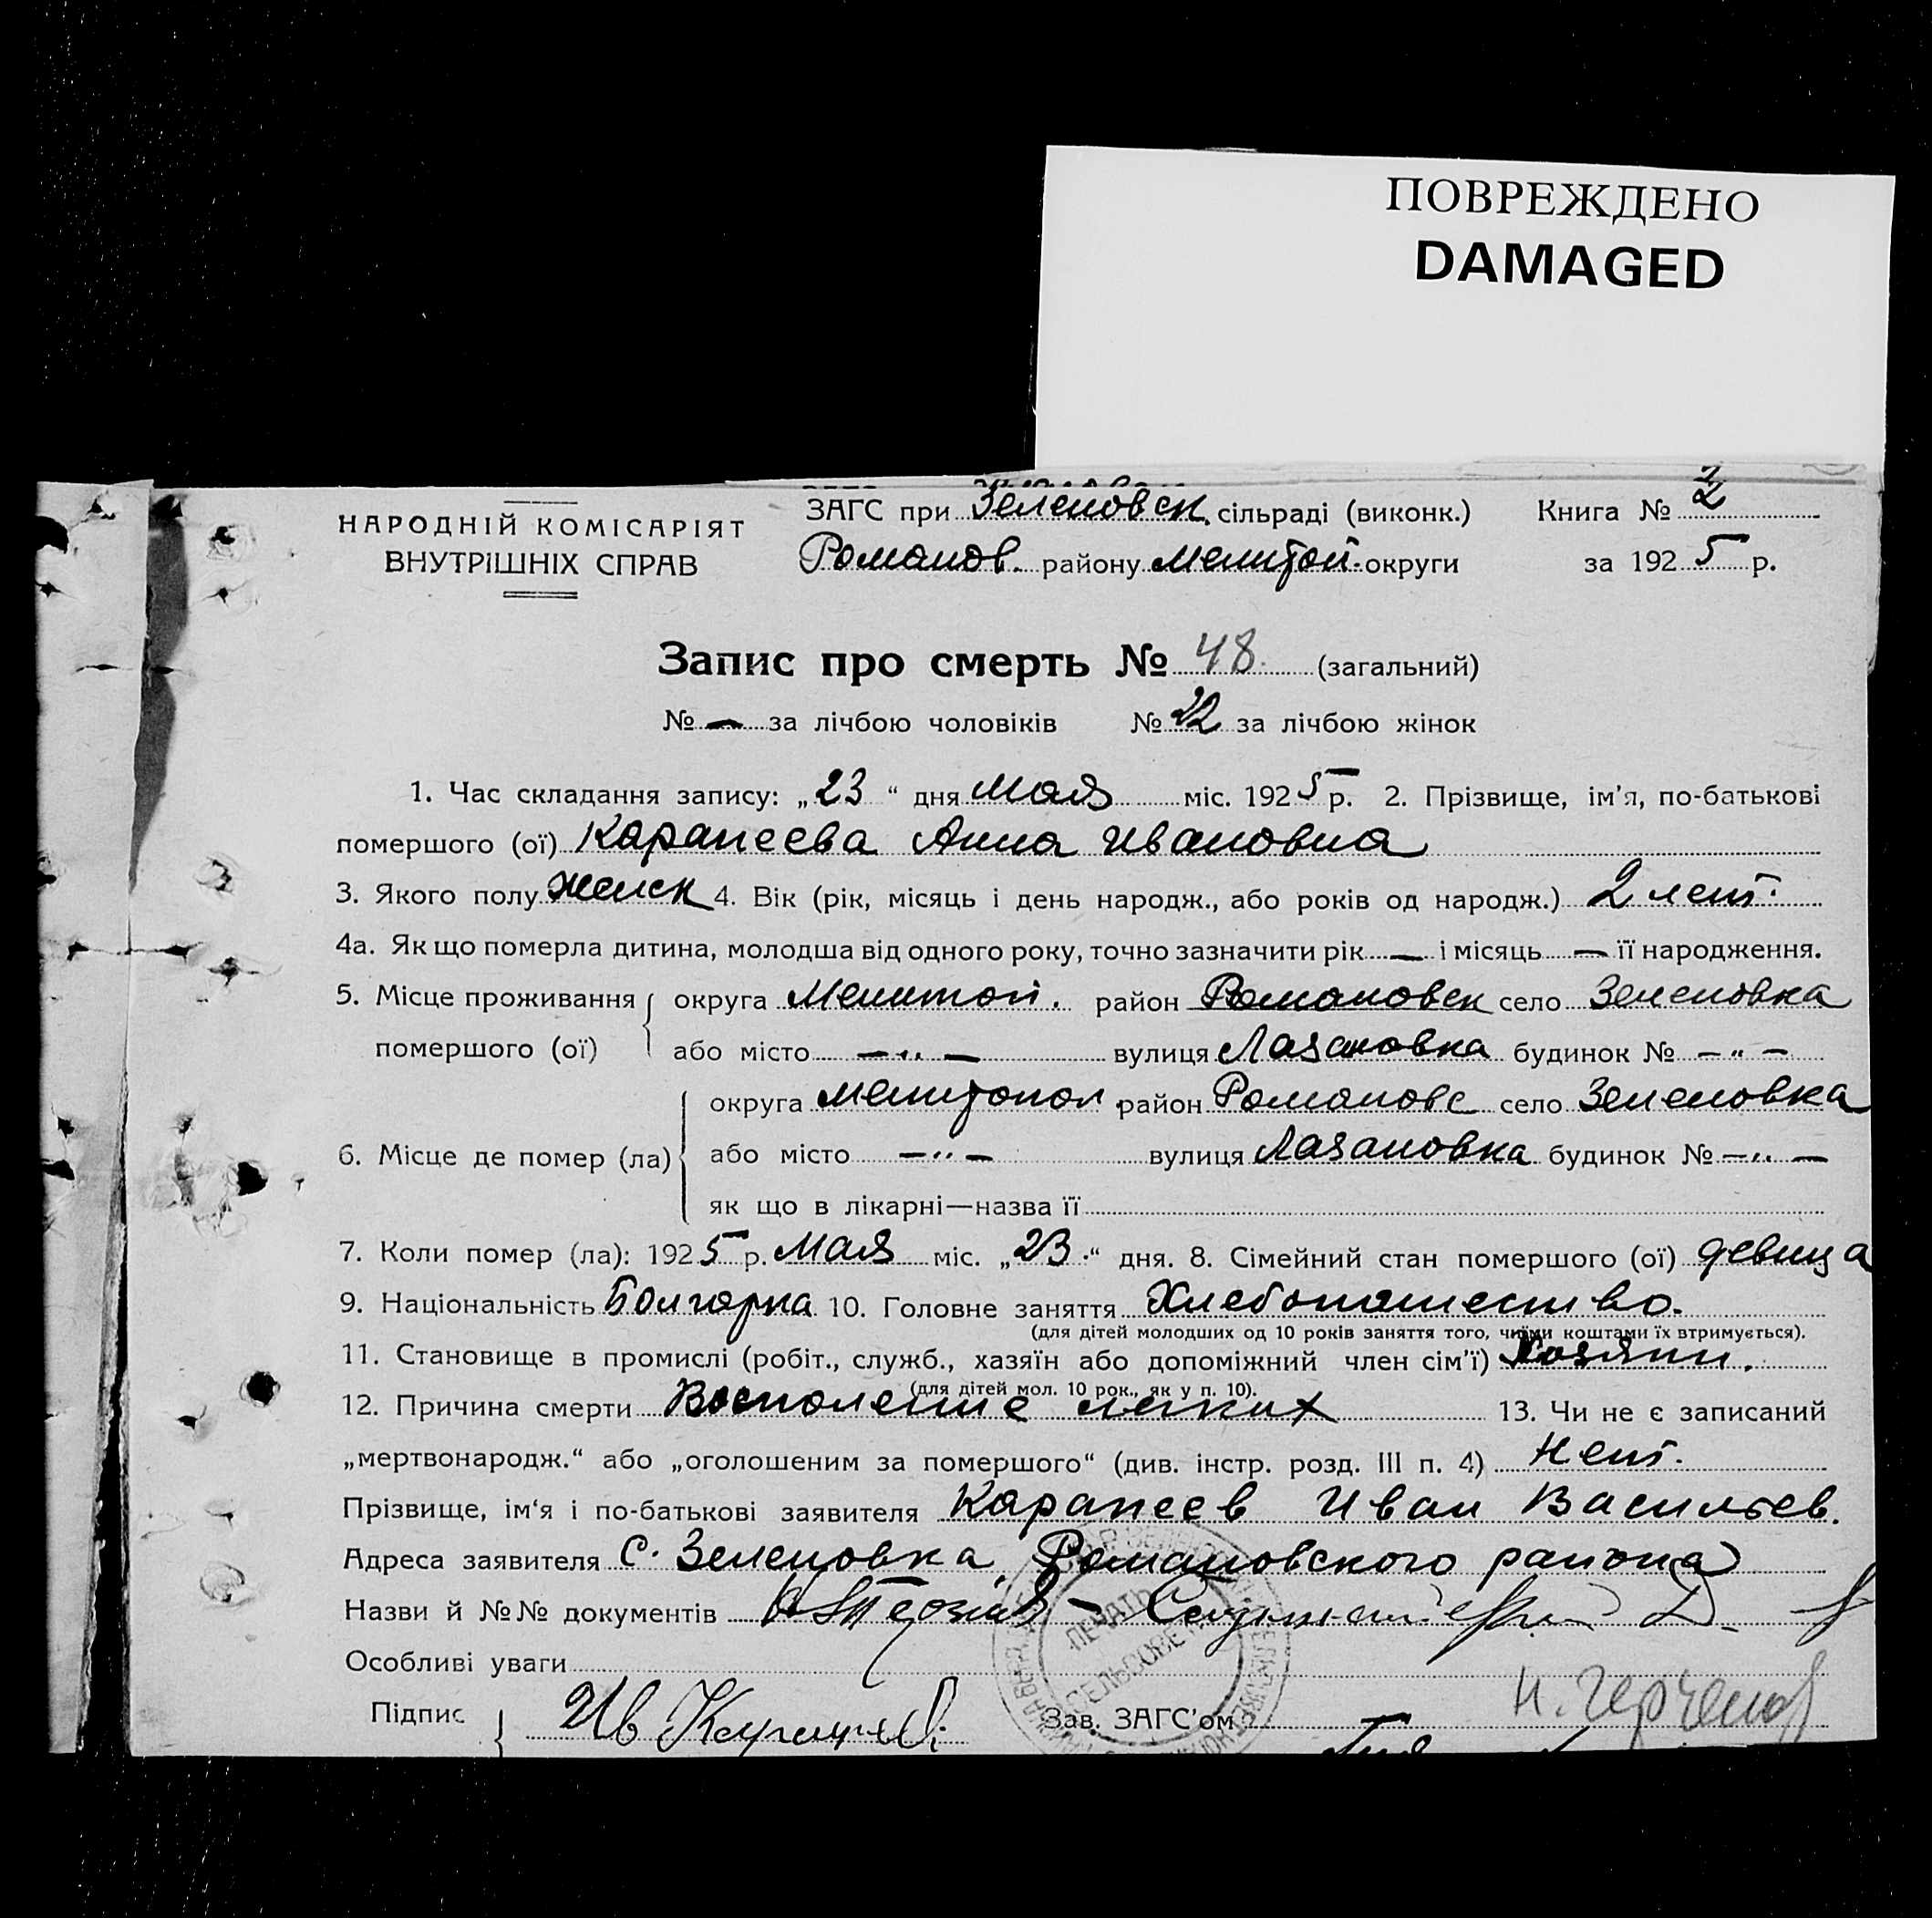 ПОВРЕЖДЕНО
DAMAGED
НАРОДНІЙ КОМІСАРІЯТ
ВНУТРІШНІХ СПРАВ
ЗАГС при Зеленовск. сільраді (виконк.) Книга № 2
Романов. району Мелитоп. округи за 1925 р.
Запис про смерть № 48. (загальний)
№ — за лічбою чоловіків № 22 за лічбою жінок
1. Час складання запису: „23“ дня Мая міс. 1925 р. 2. Прізвище, ім’я, по-батькові
помершого (ої) Карапеева Анна Ивановна
3. Якого полу женск 4. Вік (рік, місяць і день народж., або років од народж.) 2 лет.
4а. Як що померла дитина, молодша від одного року, точно зазначити рік — і місяць — її народження.
5. Місце проживання округа Мелитоп. район Романовск село Зеленовка
помершого (ої) або місто —„— вулиця Лазановка будинок № —„—
округа Мелитопол. район Романовс село Зеленовка
6. Місце де помер (ла) або місто —„— вулиця Лазановка будинок № —„—
як що в лікарні—назва її
7. Коли помер (ла): 1925 р. Мая міс. „23.“ дня. 8. Сімейний стан помершого (ої) девица
9. Національність Болгарка 10. Головне заняття Хлебопашество.
(для дітей молодших од 10 років заняття того, чиїми коштами їх втримується).
11. Становище в промислі (робіт., служб., хазяїн або допоміжний член сім’ї) Хозяин.
(для дітей мол. 10 рок., як у п. 10).
12. Причина смерти Восполение легких 13. Чи не є записаний
„мертвонародж.“ або „оголошеним за помершого“ (див. інстр. розд. III п. 4) Нет.
Прізвище, ім‘я і по-батькові заявителя Карапеев Иван Васильев.
Адреса заявителя с. Зеленовка, Романовского района
Назви й №№ документів
Особливі уваги
ПЕЧАТЬ
СЕЛЬСОВЕТА
Підпис Ив Карапеев. Зав. ЗАГС’ом